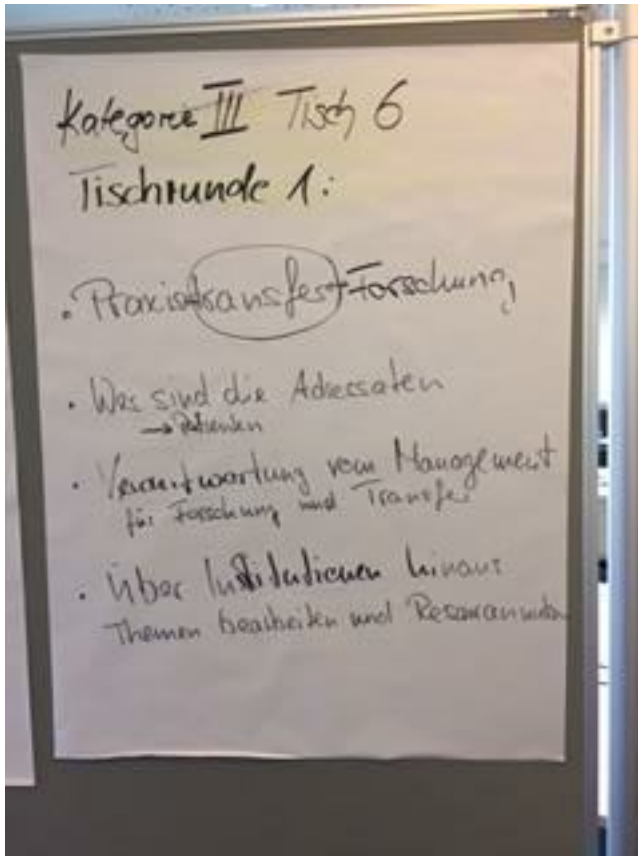 Kategorie III Tisch 6
Tischrunde 1:
• Praxistransfer + Forschung
• Wer sind die Adressaten
→ Patienten
• Verantwortung vom Management
für Forschung und Transfer
• Über Institutionen hinaus
Themen bearbeiten und